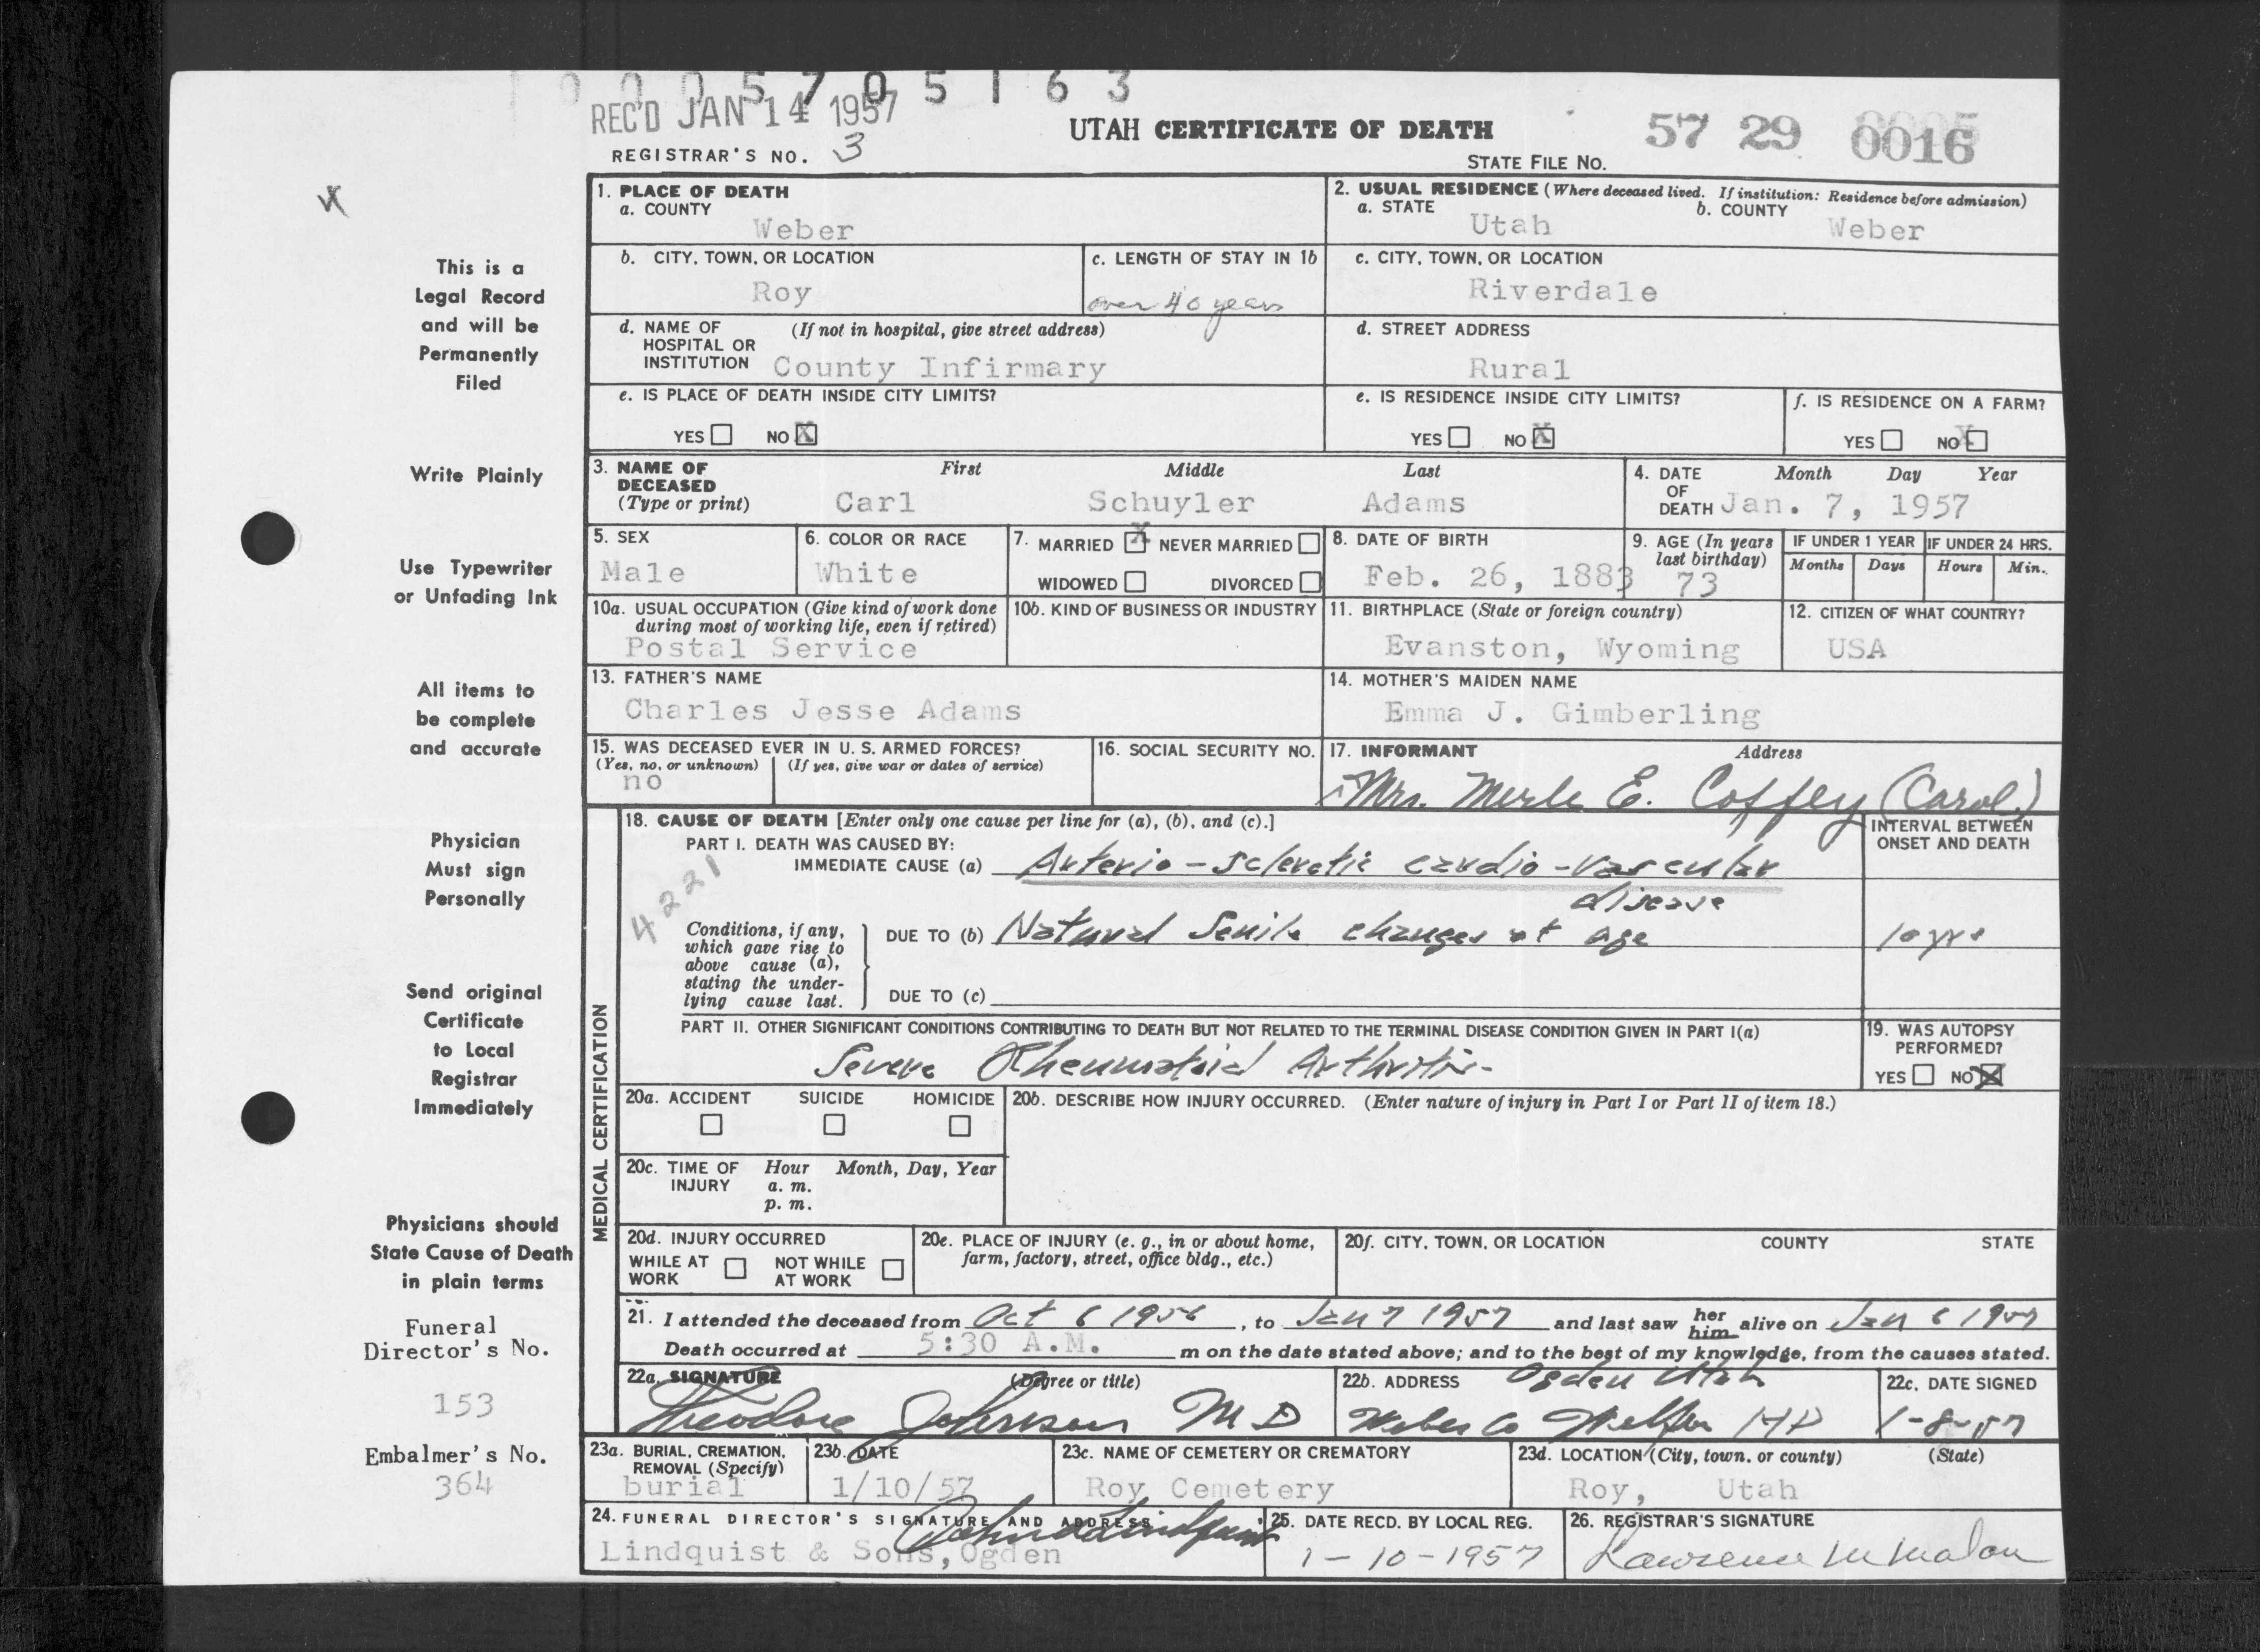 0 0 0 5 7 0 5 1 6 3
REC'D JAN 14 1957
UTAH CERTIFICATE OF DEATH
57 29 0016
REGISTRAR'S NO. 3
STATE FILE NO.
This is a
Legal Record
and will be
Permanently
Filed
Write Plainly
Use Typewriter
or Unfading Ink
All items to
be complete
and accurate
Physician
Must sign
Personally
Send original
Certificate
to Local
Registrar
Immediately
Physicians should
State Cause of Death
in plain terms
Funeral
Director's No.
153
Embalmer's No.
364
1. PLACE OF DEATH
a. COUNTY
Weber
2. USUAL RESIDENCE (Where deceased lived. If institution: Residence before admission)
a. STATE b. COUNTY
Utah Weber
b. CITY, TOWN, OR LOCATION
Roy
c. LENGTH OF STAY IN 1b
over 40 years
c. CITY, TOWN, OR LOCATION
Riverdale
d. NAME OF (If not in hospital, give street address)
HOSPITAL OR
INSTITUTION County Infirmary
d. STREET ADDRESS
Rural
e. IS PLACE OF DEATH INSIDE CITY LIMITS?
YES NO X
e. IS RESIDENCE INSIDE CITY LIMITS?
YES NO X
f. IS RESIDENCE ON A FARM?
YES NO X
3. NAME OF First Middle Last
DECEASED
(Type or print) Carl Schuyler Adams
4. DATE Month Day Year
OF
DEATH Jan. 7, 1957
5. SEX
Male
6. COLOR OR RACE
White
7. MARRIED X NEVER MARRIED
WIDOWED DIVORCED
8. DATE OF BIRTH
Feb. 26, 1883
9. AGE (In years
last birthday)
73
IF UNDER 1 YEAR IF UNDER 24 HRS.
Months Days Hours Min.
10a. USUAL OCCUPATION (Give kind of work done
during most of working life, even if retired)
Postal Service
10b. KIND OF BUSINESS OR INDUSTRY
11. BIRTHPLACE (State or foreign country)
Evanston, Wyoming
12. CITIZEN OF WHAT COUNTRY?
USA
13. FATHER'S NAME
Charles Jesse Adams
14. MOTHER'S MAIDEN NAME
Emma J. Gimberling
15. WAS DECEASED EVER IN U. S. ARMED FORCES?
(Yes, no, or unknown) (If yes, give war or dates of service)
no
16. SOCIAL SECURITY NO.
17. INFORMANT Address
Mrs. Merle E. Coffey (Carol)
MEDICAL CERTIFICATION
18. CAUSE OF DEATH [Enter only one cause per line for (a), (b), and (c).]
INTERVAL BETWEEN
ONSET AND DEATH
PART I. DEATH WAS CAUSED BY:
IMMEDIATE CAUSE (a) Arterio-sclerotic cardio-vascular
disease
4221
Conditions, if any,
which gave rise to
above cause (a),
stating the under-
lying cause last.
DUE TO (b) Natural Senile changes of age 10 yrs
DUE TO (c)
PART II. OTHER SIGNIFICANT CONDITIONS CONTRIBUTING TO DEATH BUT NOT RELATED TO THE TERMINAL DISEASE CONDITION GIVEN IN PART I(a)
Severe Rheumatoid Arthritis-
19. WAS AUTOPSY
PERFORMED?
YES NO X
20a. ACCIDENT SUICIDE HOMICIDE
20b. DESCRIBE HOW INJURY OCCURRED. (Enter nature of injury in Part I or Part II of item 18.)
20c. TIME OF Hour Month, Day, Year
INJURY a. m.
p. m.
20d. INJURY OCCURRED
WHILE AT NOT WHILE
WORK AT WORK
20e. PLACE OF INJURY (e. g., in or about home,
farm, factory, street, office bldg., etc.)
20f. CITY, TOWN, OR LOCATION COUNTY STATE
21. I attended the deceased from Oct 6 1956, to Jan 7 1957 and last saw her him alive on Jan 6 1957
Death occurred at 5:30 A.M. m on the date stated above; and to the best of my knowledge, from the causes stated.
22a. SIGNATURE (Degree or title)
Theodore Johnson MD
22b. ADDRESS Ogden Utah
Weber Co
22c. DATE SIGNED
1-8-57
23a. BURIAL, CREMATION,
REMOVAL (Specify)
burial
23b. DATE
1/10/57
23c. NAME OF CEMETERY OR CREMATORY
Roy Cemetery
23d. LOCATION (City, town, or county) (State)
Roy, Utah
24. FUNERAL DIRECTOR'S SIGNATURE AND ADDRESS
Lindquist & Sons, Ogden
25. DATE RECD. BY LOCAL REG.
1-10-1957
26. REGISTRAR'S SIGNATURE
Lawrence M Malan